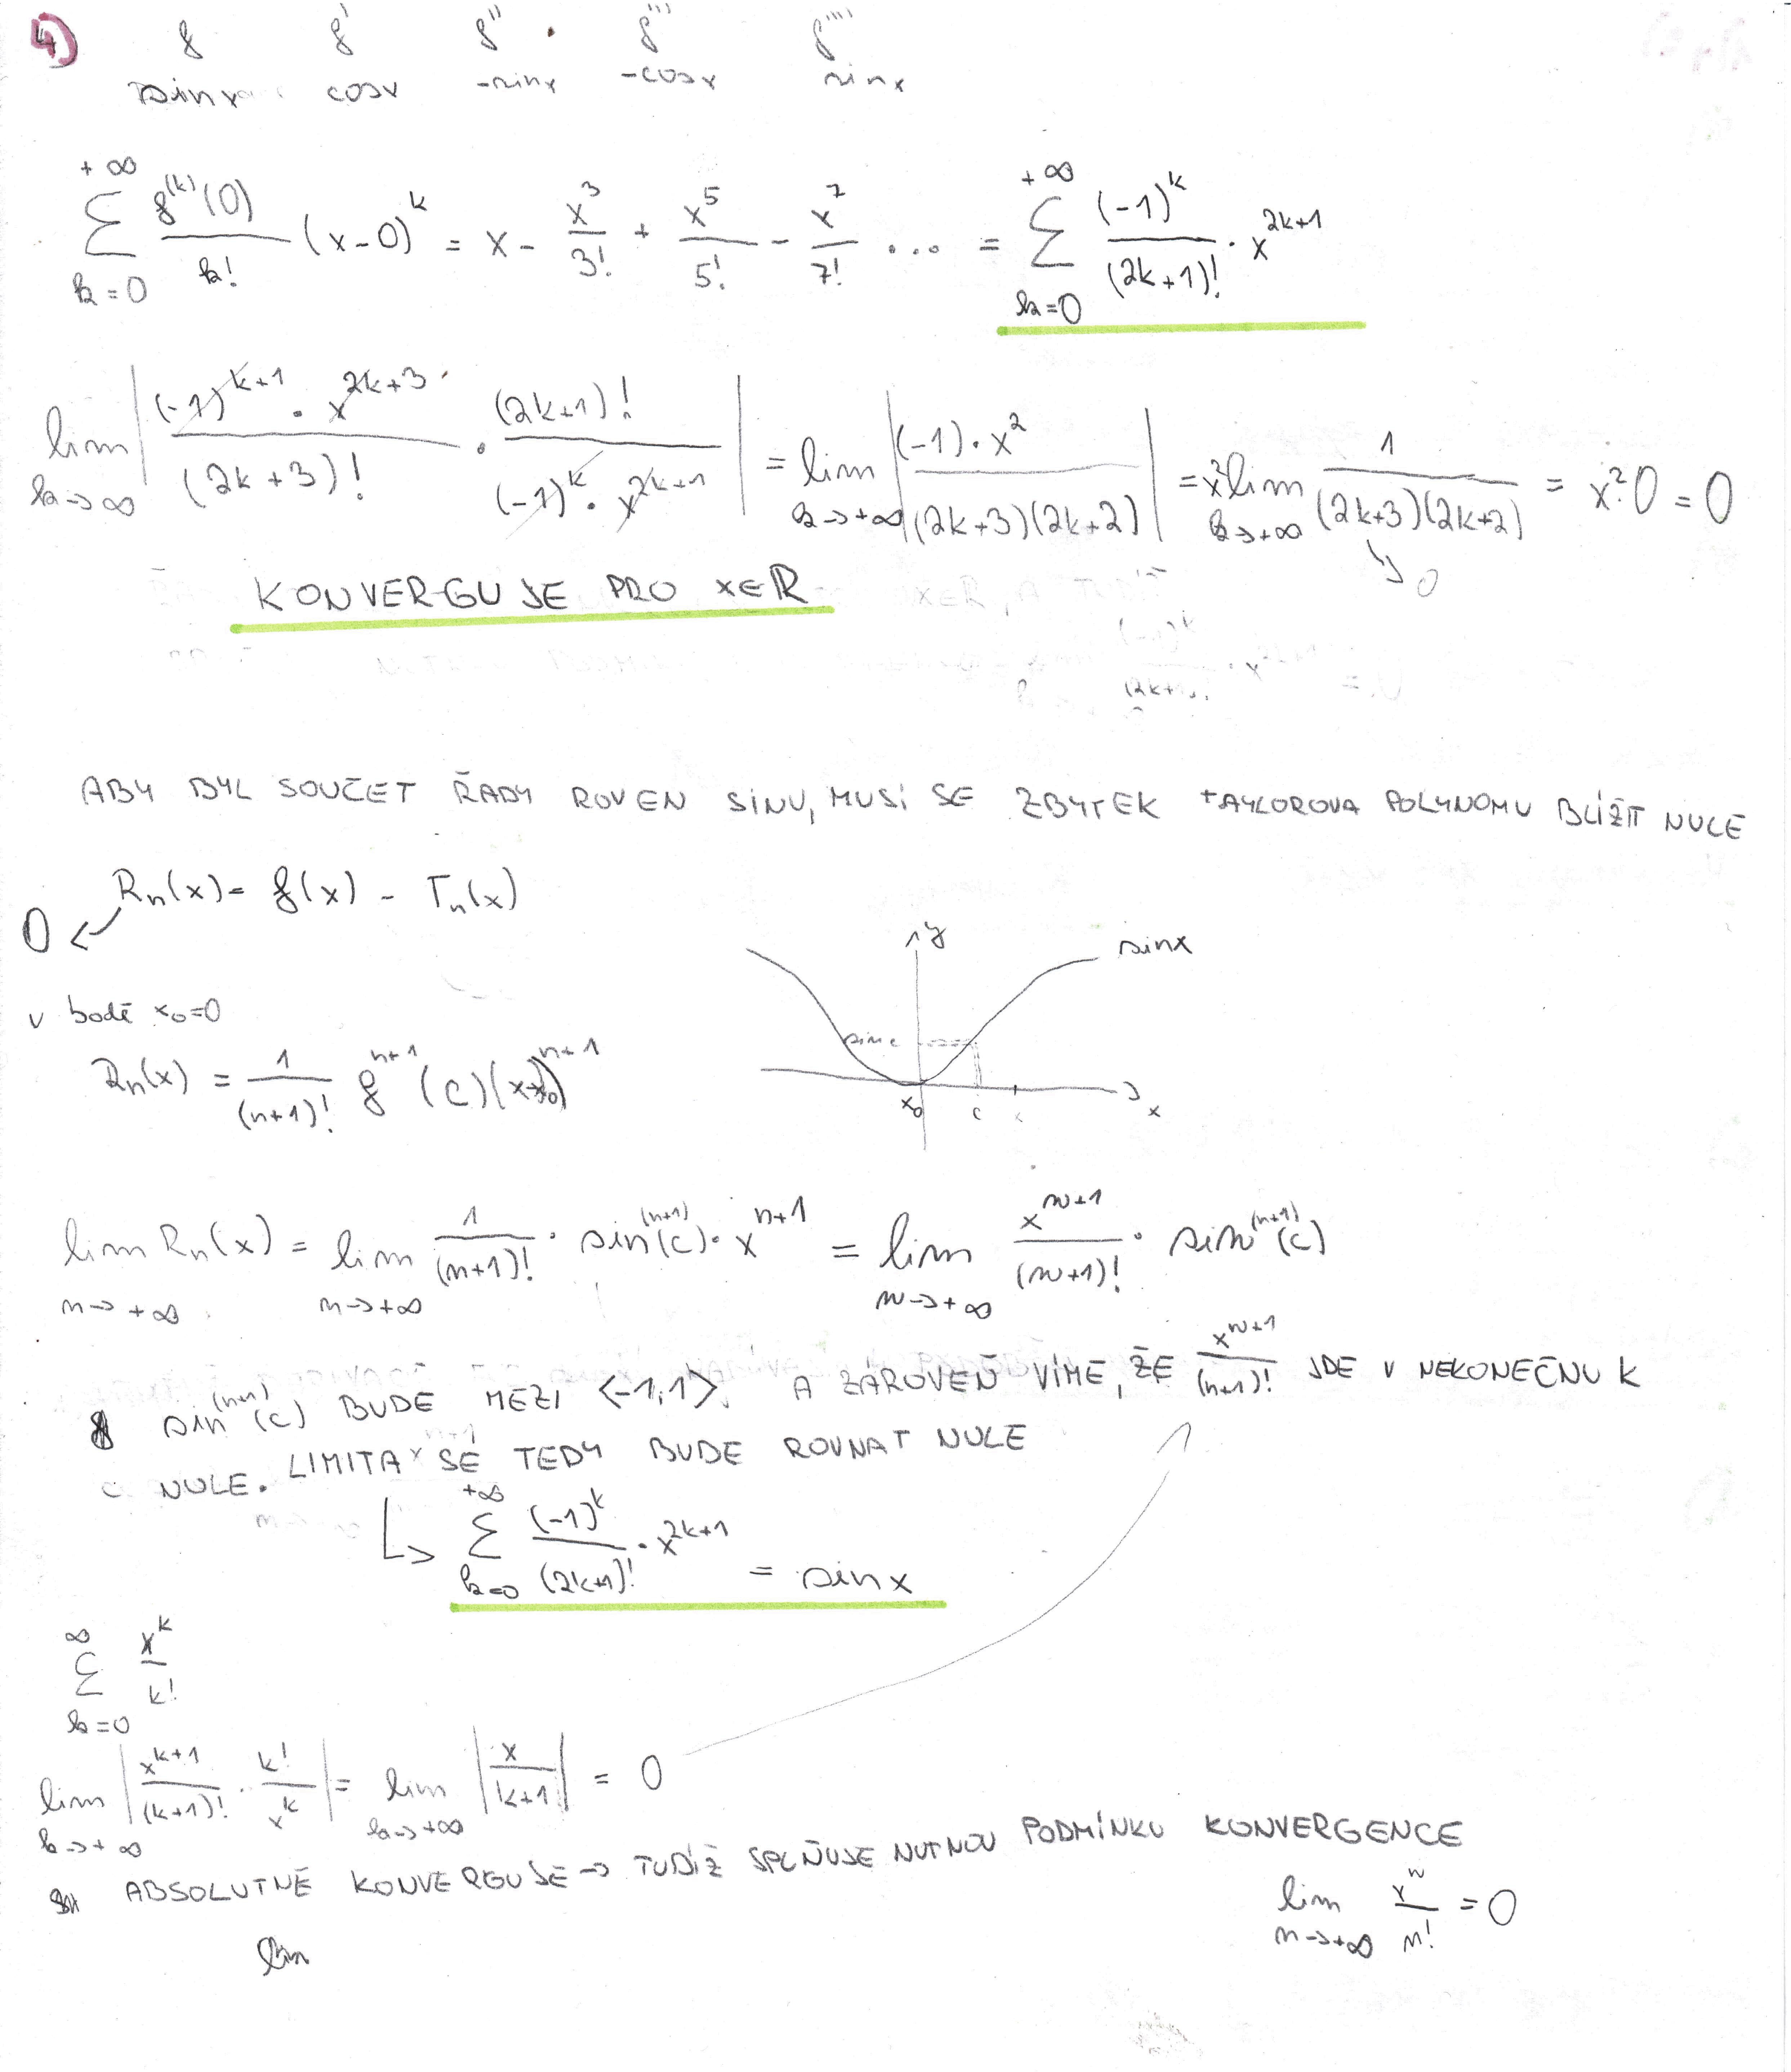 4) f f' f'' f''' f''''
sinx cosx -sinx -cosx sinx
+∞ ∑ k=0 f^(k)(0)/k! (x-0)^k = x - x^3/3! + x^5/5! - x^7/7! ... = +∞ ∑ k=0 (-1)^k/(2k+1)! · x^(2k+1)
lim k→∞ |(-1)^(k+1) · x^(2k+3)/(2k+3)! · (2k+1)!/((-1)^k · x^(2k+1))| = lim k→+∞ |(-1)·x^2/((2k+3)(2k+2))| = x^2 lim k→+∞ 1/((2k+3)(2k+2)) = x^2·0 = 0
↘ 0
KONVERGUJE PRO x∈ℝ
ABY BYL SOUČET ŘADY ROVEN SINU, MUSÍ SE ZBYTEK TAYLOROVA POLYNOMU BLÍŽIT NULE
0 ← Rn(x) = f(x) - Tn(x)
v bodě x₀=0
Rn(x) = 1/(n+1)! f^(n+1) (c)(x-x₀)^(n+1)
y sinx
sinc
x₀ c x
lim n→+∞ Rn(x) = lim n→+∞ 1/(n+1)! · sin^(n+1)(c) · x^(n+1) = lim n→+∞ x^(n+1)/(n+1)! · sin^(n+1)(c)
sin^(n+1)(c) BUDE MEZI <-1;1>. A ZÁROVEŇ VÍME, ŽE x^(n+1)/(n+1)! JDE V NEKONEČNU K
NULE. LIMITA SE TEDY BUDE ROVNAT NULE
↳ +∞ ∑ k=0 (-1)^k/(2k+1)! · x^(2k+1) = sinx
∞ ∑ k=0 x^k/k!
lim k→+∞ |x^(k+1)/(k+1)! · k!/x^k| = lim k→+∞ |x/(k+1)| = 0
ABSOLUTNĚ KONVERGUJE → TUDÍŽ SPLŇUJE NUTNOU PODMÍNKU KONVERGENCE
lim n→+∞ x^n/n! = 0
lim